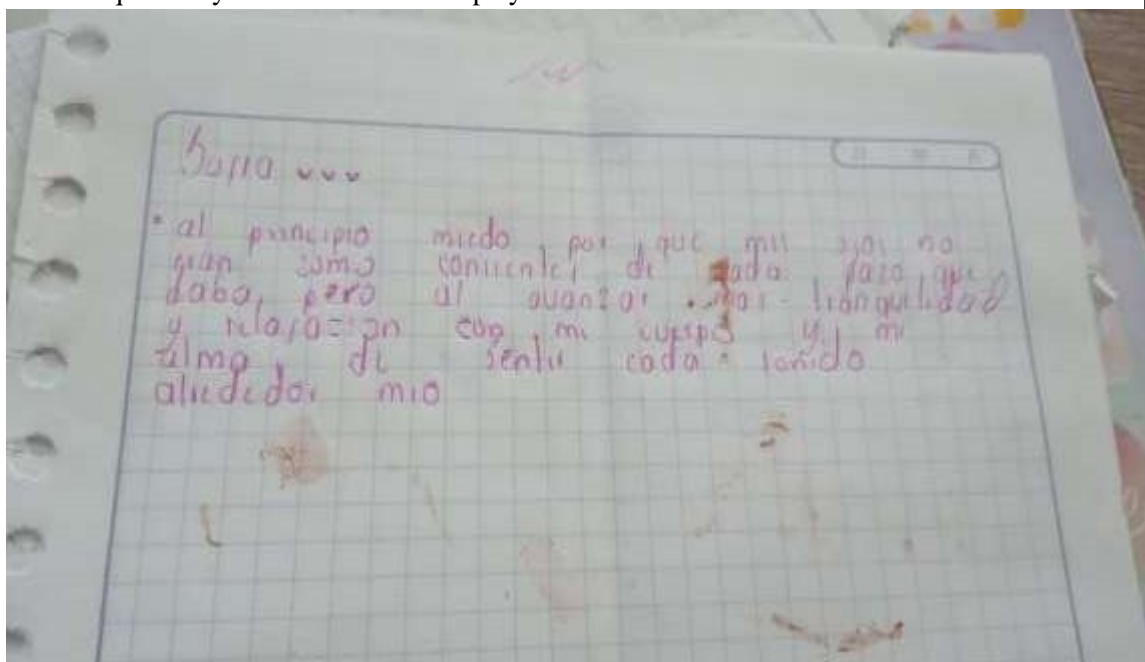 al principio miedo, por que mis ojos no
eran como conscientes de cada paso que
daba, pero al avanzar mas tranquilidad
y relajacion con mi cuerpo y mi
alma, de sentir cada sonido
alrededor mio